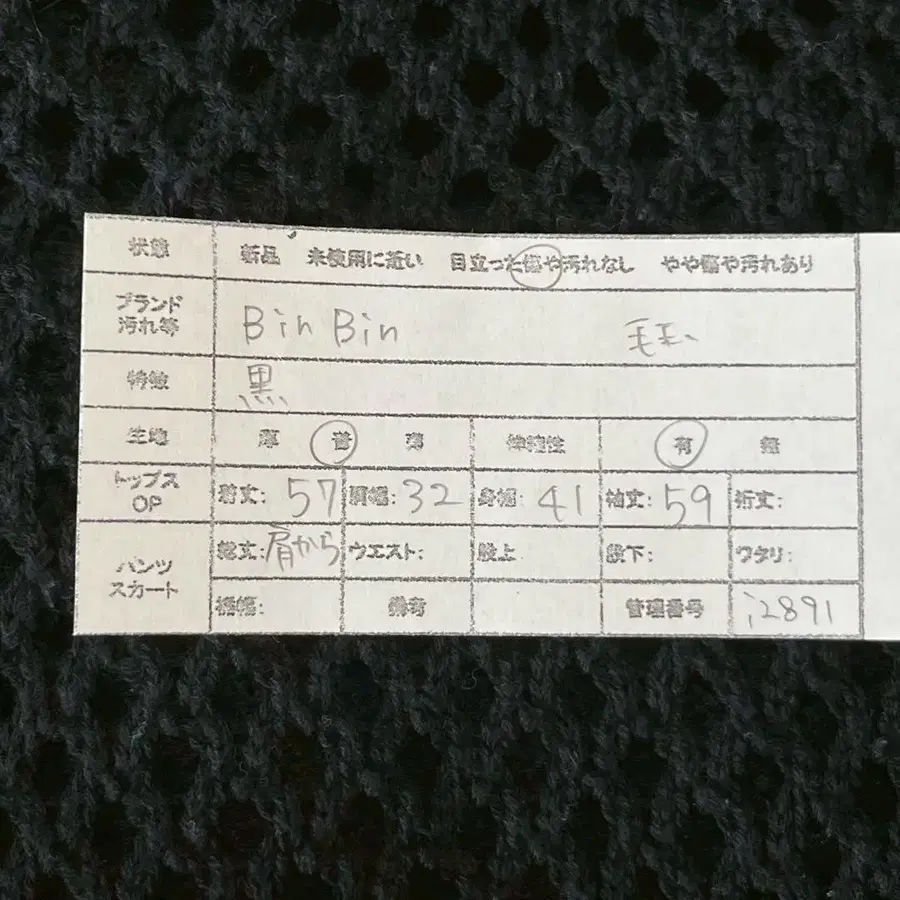 状態 新品 未使用に近い 目立った傷や汚れなし やや傷や汚れあり
ブランド 汚れ等 BinBin
特徴 黒
生地 厚 普 薄 伸縮性 有 無
トップス OP 着丈: 57 肩幅: 32 身幅: 41 袖丈: 59 裄丈:
パンツ スカート 総丈: 肩から ウエスト: 股上 股下: ワタリ:
裾幅: 備考 管理番号 i2891